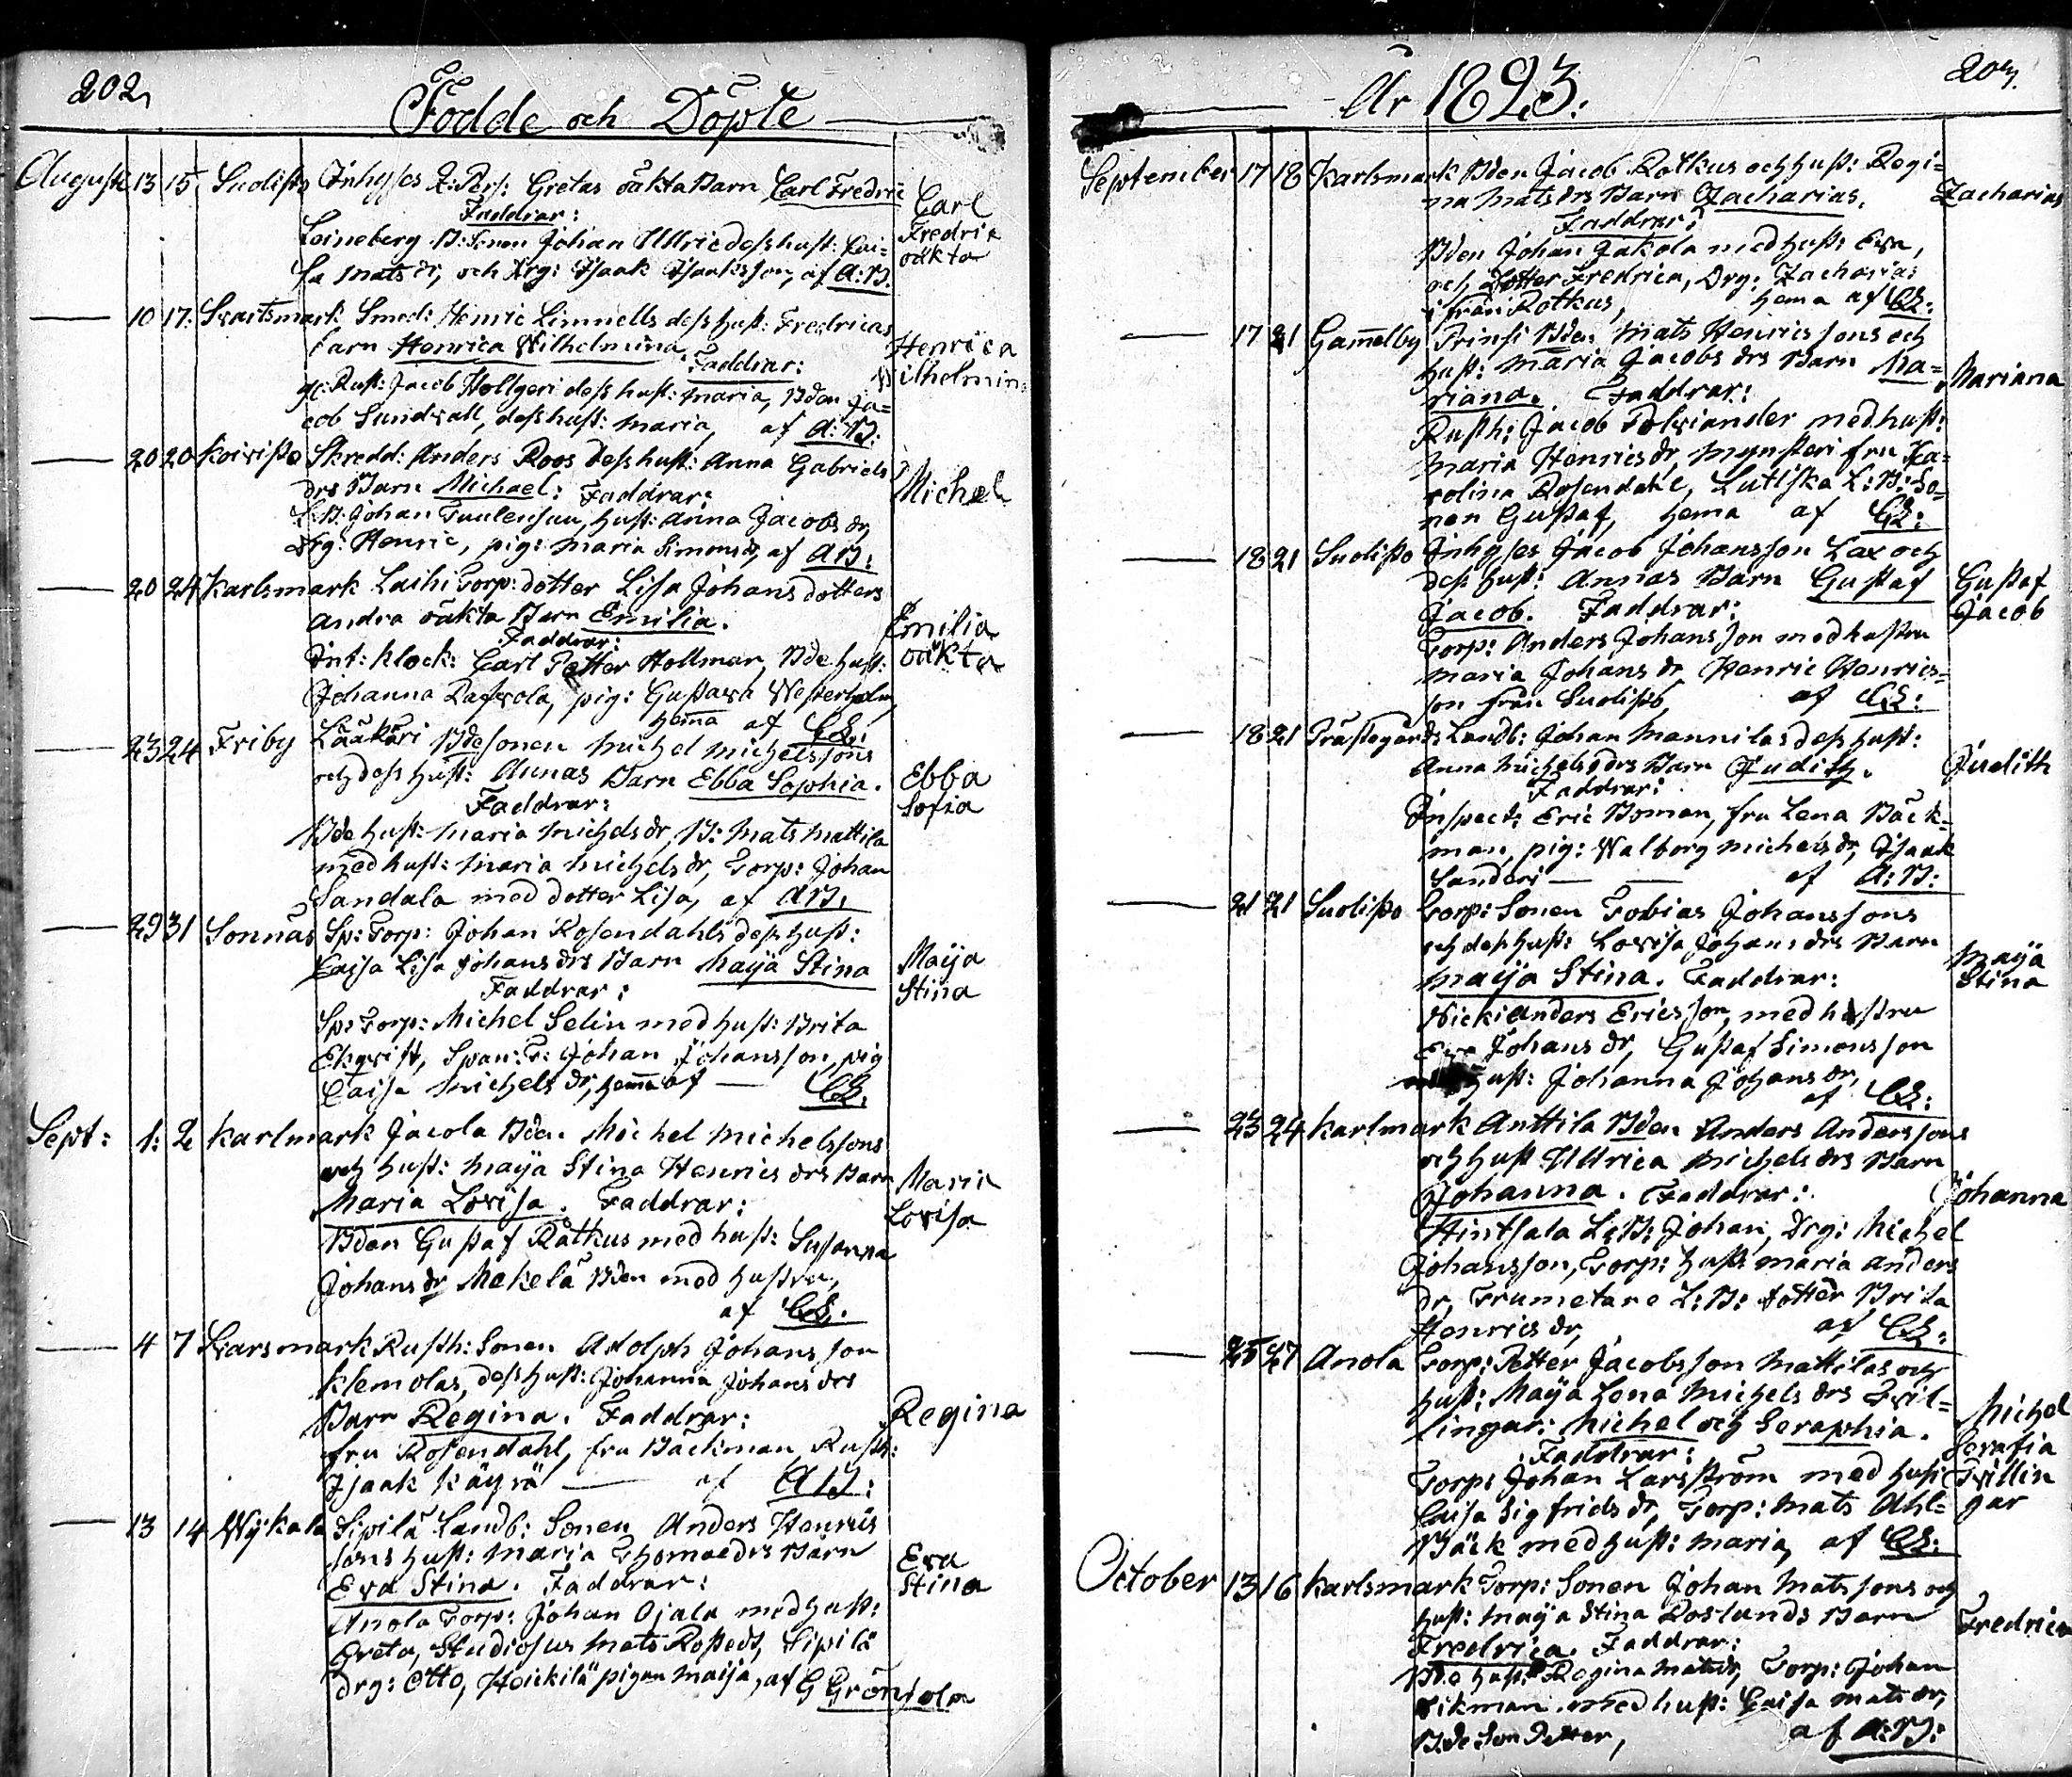 202
Födde och Döpte
Augusti 13 15 Suolisto Inhyses Q:Pers: Gretas oäkta Barn Carl Fredric
Carl
Faddrar:
Fredric
Leineberg B:Sonen Johan Ullric dess hust: Cai=
oäkta
sa Mats dr, och Drg: Isaak Isaksson, af A:B.
10 17: Svartsmark Smed: Henric Limnells dess hust: Fredricas
barn Henrica Wilhelmina
Henrica
Faddrar:
Wilhelmin
Rust: Jacob Holtgeri dess hust: Maria, Bden Ja=
cob Sundvall, dess hust: Maria, af A:B:
20 20 Koivisto Skredd: Anders Roos dess hust: Anna Gabriels
drs Barn Michael: Faddrar:
Michel
L:B: Johan Tuulensuu, hust: Anna Jacobs dr,
Drg: Henric, pig: Maria Simonsdr, af AB:
20 24 Karlsmark Laihi Torp: dotter Lisa Johans dotters
andra oäkta Barn Emilia.
Emilia
Faddrar:
oäkta
Int: Klock: Carl Petter Hollmar, Bde hust:
Johanna Rafvola, pig: Gustava Westerholm,
hema af CL:
23 24 Friby Lääkäri Bdesonen Michel Michelssons
och dess hust: Annas Barn Ebba Sophia.
Ebba
Sofia
Faddrar:
Bde hust: Maria Michels dr, B: Mats Mattila
med hust: Maria Michels dr, Torp: Johan
Sandala med dotter Lisa, af AB.
29 31 Sonnäs Sp: Torp: Johan Rosendahls dess hust:
Caisa Lisa Johans drs Barn Maija Stina
Maija
Stina
Faddrar:
Sp: Torp: Michel Selin med hust: Brita
Ekqvist, Span: T: Johan Johansson, pig
Caisa Michels dr, hema af CL.
Sept: 1: 2 Karlmark Jacola Bden Michel Michelssons
och hust: Maija Stina Henrics drs Barn
Maria
Maria Lovisa. Faddrar:
Lovisa
Bden Gustaf Rätkus med hust: Susanna
Johans dr Mekelä Bden med hustru,
af CL:
4 7 Svarsmark Rusth: Sonen Adolph Johansson
Klemolas, dess hust: Johanna Johans drs
Barn Regina. Faddrar:
Regina
fru Rosendahl, fru Bäckman, Rusth:
Isaak Käyrä af AB:
13 14 Wykala Sipilä Landb: Sonen Anders Henrics
sons hust: Maria Thomae drs Barn
Eva
Eva Stina. Faddrar:
Stina
Anola Torp: Johan Ojala med hust:
Greta, Studiosus Mats Rostedt, Sipilä
drg: Otto, Heickilä pigan Maija, af G Grönholm
År 1823.
203.
September 17 18 Karlsmark Bden Jacob Rotkus och hust: Regi=
Zacharias
na Mats drs Barn Zacharias.
Faddrar:
Bden Johan Jakola med hust: Eva,
och Dotter Fredrica, Drg: Zacharias
ifrån Rotkus, hema af CL:
17 21 Gamelby Prinsi Bden Mats Henricssons och
hust: Maria Jacobs drs Barn Ma=
Mariana
riana. Faddrar:
Rusth: Jacob Polviander med hust:
Maria Henrics dr, Mynsteri fru Ka=
rolina Rosendahl, Lutiska L:B: So=
nen Gustaf, hema af CL:
18 21 Suolisto Inhyses Jacob Johansson Lax och
dess hust: Annas Barn Gustaf
Gustaf
Jacob. Faddrar:
Jacob
Torp: Anders Johansson med hustru
Maria Johans dr, Henric Henrics=
son från Suolisto, af CL:
18 21 Prästegårds Landb: Johan Mannilas dess hust:
Anna Michels drs Barn Judith.
Judith
Faddrar:
Inspect: Eric Boman, fru Lena Bäck=
man, pig: Walborg Michels dr, Isaak
Sanderi af A:B:
21 21 Suolisto Torp: Sonen Tobias Johanssons
och dess hust: Lovisa Johans drs Barn
Maija
Maija Stina. Faddrar:
Stina
Nicki Anders Ericsson, med hustru
Eva Johans dr, Gustaf Simonsson
hust: Johanna Johans dr,
af CL:
23 24 Karlmark Anttila Bden Anders Anderssons
och hust Ullrica Michels drs Barn
Johanna. Faddrar:
Johanna
Hintsala L:B: Johan, Drg: Michel
Johansson, Torp: hust: Maria Anders
dr, Trumetare L:B: dotter Brita
Henrics dr, af CL:
25 27 Anola Torp: Petter Jacobsson Mattilas och
hust: Maija Lena Michels drs Tvil=
lingar: Michel och Seraphia.
Michel
Serafia
Faddrar:
Torp: Johan Larsström med hust:
Tvillin
Caisa Sigfrids dr, Torp: Mats Ahl=
gar
bäck med hust: Maria, af CL:
October 13 16 Karlsmark Torp: Sonen Johan Matssons och
hust: Maija Stina Roslands Barn
Fredrica
Fredrica. Faddrar:
Bde hust: Regina Matsdr, Torp: Johan
Wikman med hust: Caisa Mats dr,
Bde Son Petter, af A:B: